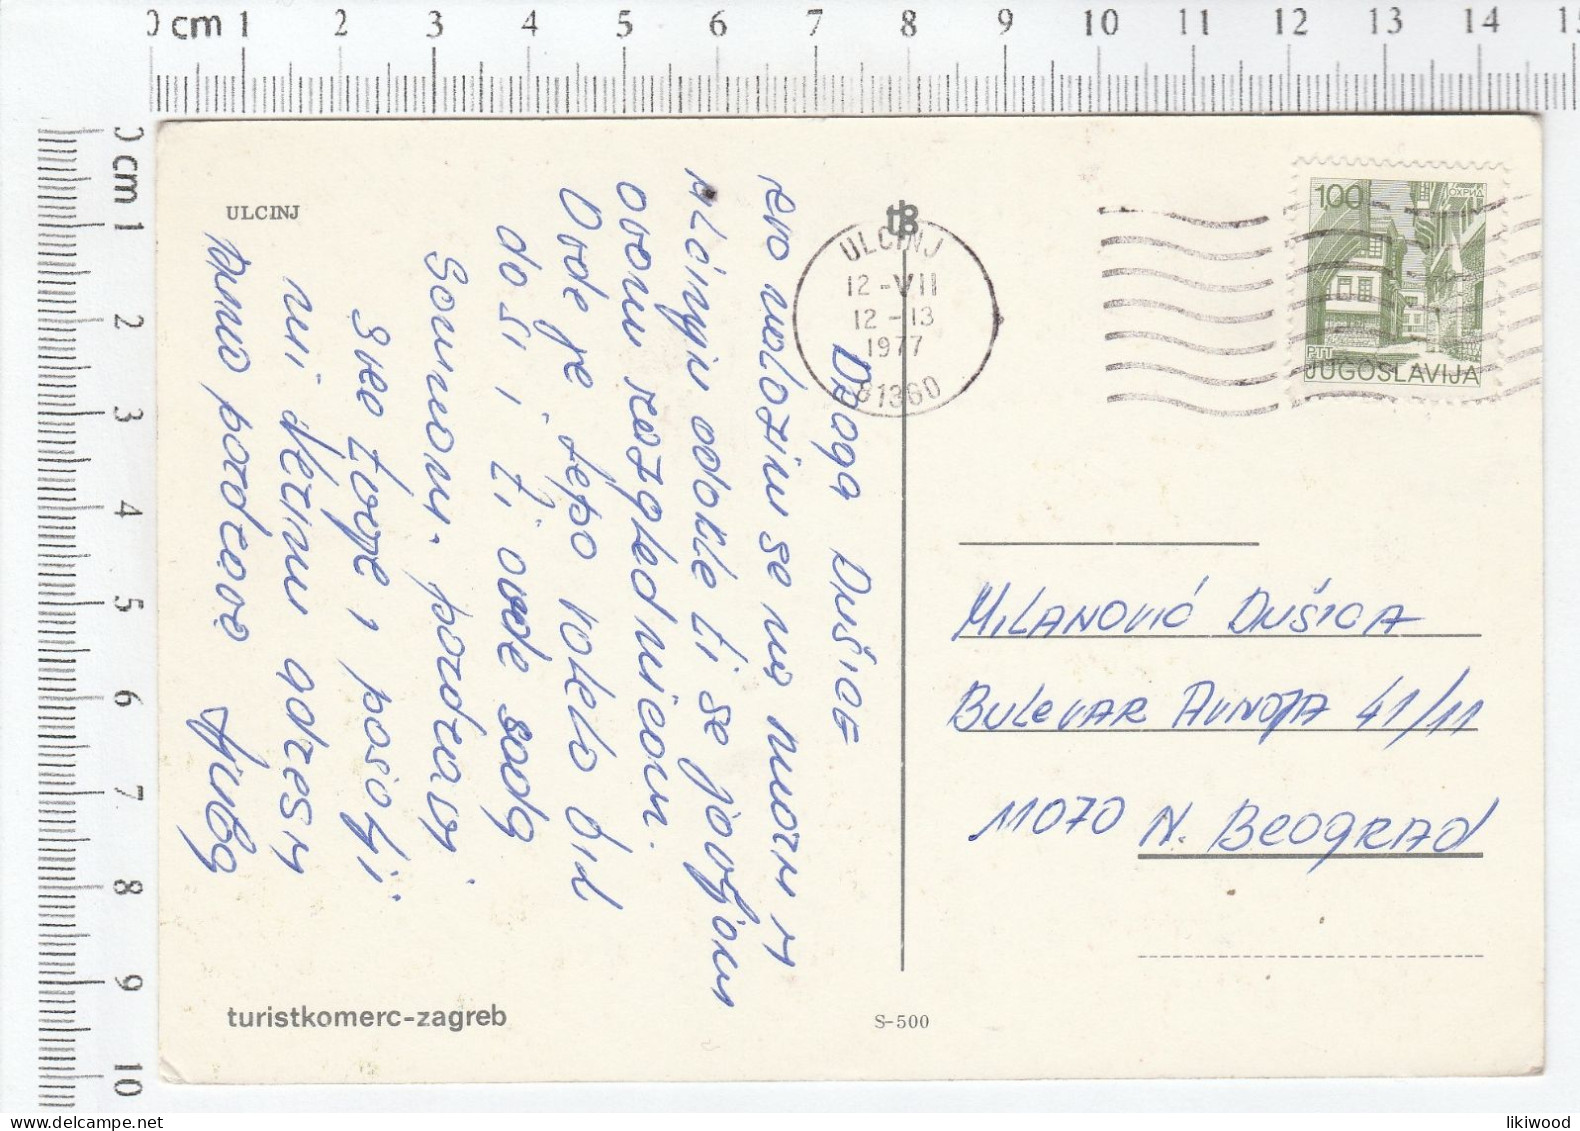 0 cm 1 2 3 4 5 6 7 8 9 10 11 12 13 14 15
0 cm 1 2 3 4 5 6 7 8 9 10
ULCINJ
Draga Dušice
evo nalazim se na moru u
Ulcinju odakle ti se javljam
ovom razglednicom.
Ovde je lepo volela bih
da si i ti ovde sada
samnom. pozdravi
sve tvoje i pošalji
mi Netinu adresu
puno pozdrava
turistkomerc-zagreb
S-500
tB
ULCINJ
12-VII
12-13
1977
81360
100
ОХРИД
PTT
JUGOSLAVIJA
MILANOVIĆ DUŠICA
BULEVAR AVNOJA 41/11
11070 N. BEOGRAD
likiwood